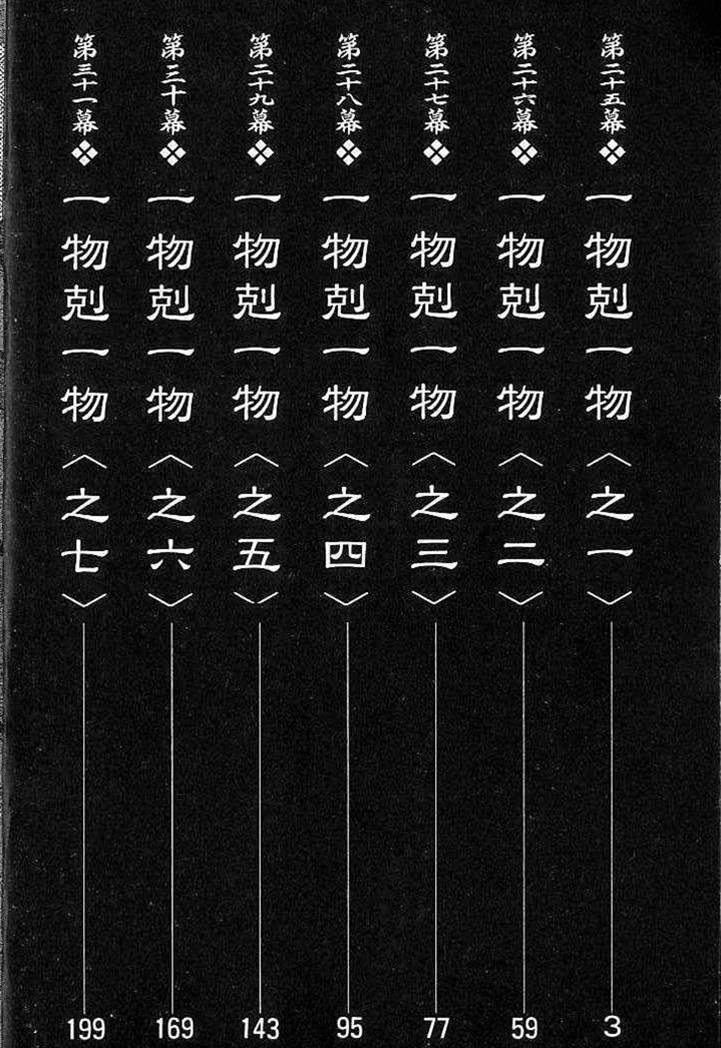 第二十五幕❖一物剋一物〈之一〉3
第二十六幕❖一物剋一物〈之二〉59
第二十七幕❖一物剋一物〈之三〉77
第二十八幕❖一物剋一物〈之四〉95
第二十九幕❖一物剋一物〈之五〉143
第三十幕❖一物剋一物〈之六〉169
第三十一幕❖一物剋一物〈之七〉199